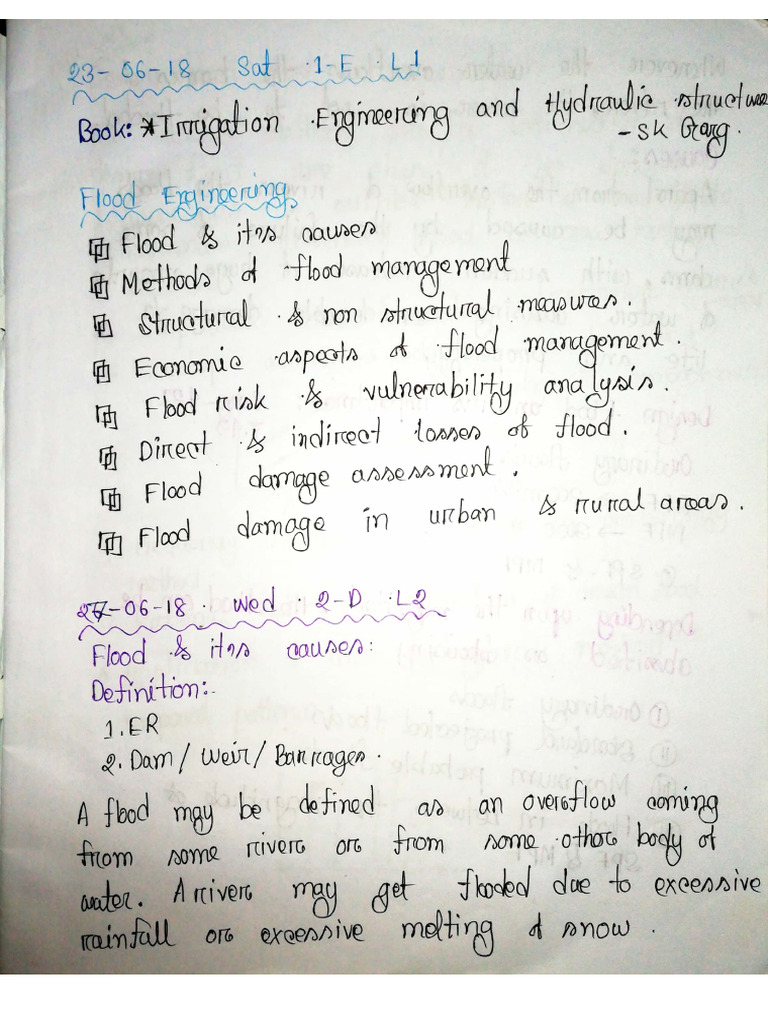 23-06-18 Sat 1-E L1
Book: *Irrigation Engineering and Hydraulic structure
- SK Garg.
Flood Engineering
Flood & its causes
Methods of flood management
Structural & non structural measures.
Economic aspects of flood management.
Flood risk & vulnerability analysis.
Direct & indirect losses of flood.
Flood damage assessment.
Flood damage in urban & rural areas.
27-06-18 Wed 2-D L2
Flood & its causes:
Definition:
1. ER
2. Dam / Weir / Barrages.
A flood may be defined as an overflow coming
from some river or from some other body of
water. A river may get flooded due to excessive
rainfall or excessive melting of snow.